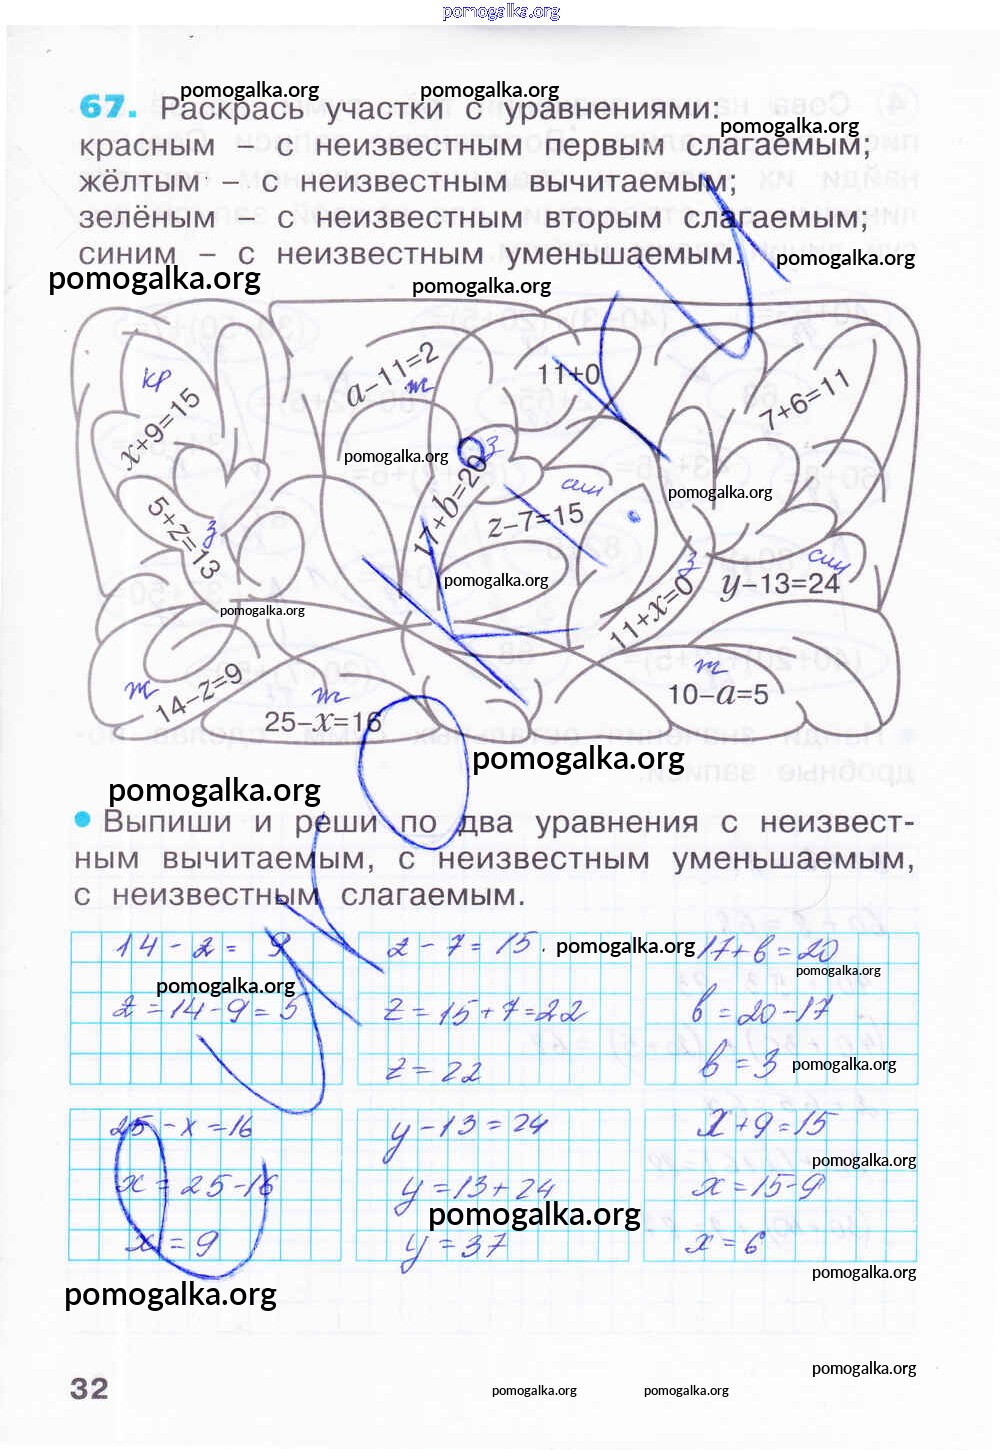 pomogalka.org
pomogalka.org pomogalka.org
67. Раскрась участки с уравнениями:
pomogalka.org
красным – с неизвестным первым слагаемым;
жёлтым – с неизвестным вычитаемым;
зелёным – с неизвестным вторым слагаемым;
синим – с неизвестным уменьшаемым.
pomogalka.org
pomogalka.org
pomogalka.org
кр
x+9=15
a–11=2
ж
11+0
7+6=11
pomogalka.org
з
17+b=20
син
z–7=15
pomogalka.org
5+z=13
з
pomogalka.org
pomogalka.org
з
11+x=0
син
y–13=24
ж
14–z=9
ж
25–x=16
ж
10–a=5
pomogalka.org
pomogalka.org
• Выпиши и реши по два уравнения с неизвест-
ным вычитаемым, с неизвестным уменьшаемым,
с неизвестным слагаемым.
14 - z = 9
z = 14 - 9 = 5
z - 7 = 15
z = 15 + 7 = 22
z = 22
17 + в = 20
в = 20 - 17
в = 3
pomogalka.org
pomogalka.org
pomogalka.org
pomogalka.org
25 - x = 16
x = 25 - 16
x = 9
y - 13 = 24
y = 13 + 24
y = 37
x + 9 = 15
x = 15 - 9
x = 6
pomogalka.org
pomogalka.org
pomogalka.org
pomogalka.org
pomogalka.org
32
pomogalka.org pomogalka.org